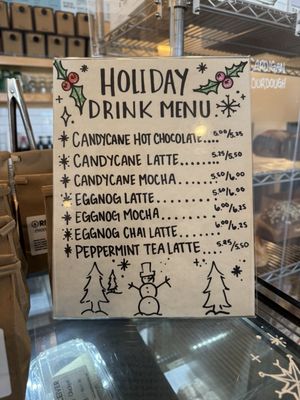 HOLIDAY
DRINK MENU
CANDYCANE HOT CHOCOLATE..... 5.00/5.25
CANDYCANE LATTE............ 5.25/5.50
CANDYCANE MOCHA........... 5.50/6.00
EGGNOG LATTE.............. 5.50/6.00
EGGNOG MOCHA............. 6.00/6.25
EGGNOG CHAI LATTE........ 6.00/6.25
PEPPERMINT TEA LATTE..... 5.25/5.50
CARDIGAN
SOURDOUGH